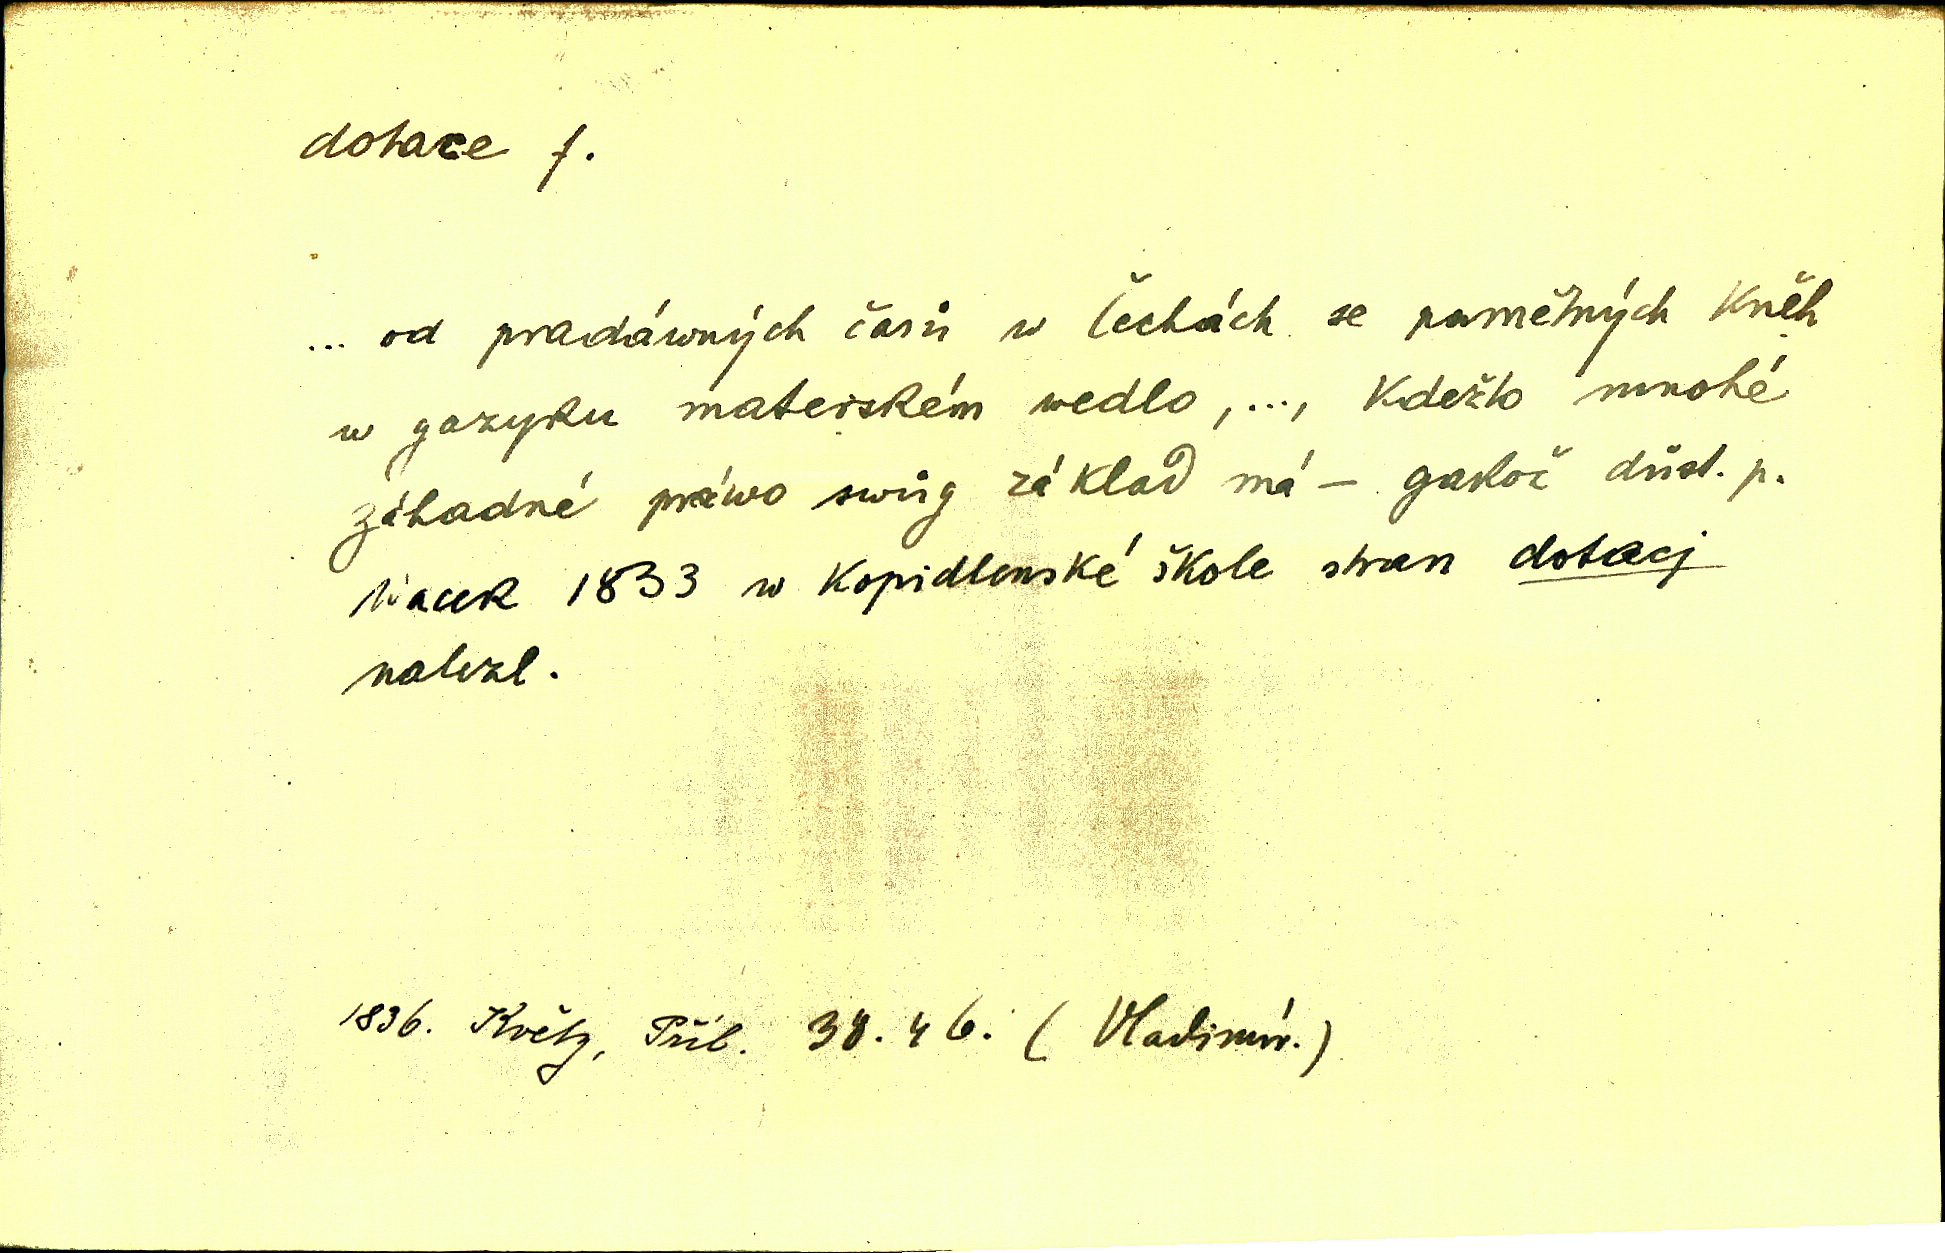 dotace f.
... od pradáwných časů w Čechách se pamětných Kněh
w gazyku mateřském wedlo, ..., Kdežto mnohé
záhadné práwo swůg základ má — gakož důst. p.
Wacek 1833 w Kopidlenské škole stran dotacj
nalezl.
1836. Květy, Příl. 38. 46. (Vladimír.)